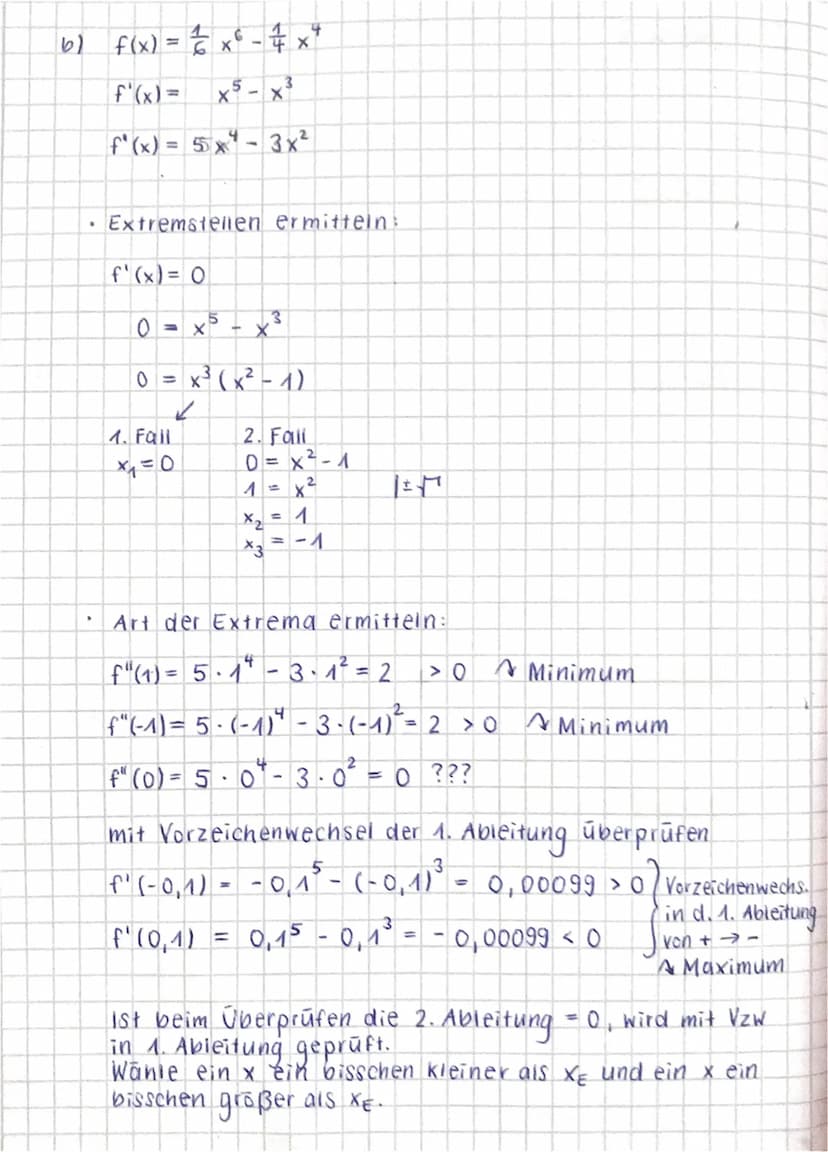 b) f(x) = 1/6 x⁶ - 1/4 x⁴
f'(x) = x⁵ - x³
f"(x) = 5x⁴ - 3x²
· Extremstellen ermitteln:
f'(x) = 0
0 = x⁵ - x³
0 = x³ (x² - 1)
↙
1. Fall 2. Fall
x₁ = 0 0 = x² - 1
1 = x² |±√
x₂ = 1
x₃ = -1
· Art der Extrema ermitteln:
f"(1) = 5 · 1⁴ - 3 · 1² = 2 > 0 ↷ Minimum
f"(-1) = 5 · (-1)⁴ - 3 · (-1)² = 2 > 0 ↷ Minimum
f"(0) = 5 · 0⁴ - 3 · 0² = 0 ???
mit Vorzeichenwechsel der 1. Ableitung überprüfen
f'(-0,1) = -0,1⁵ - (-0,1)³ = 0,00099 > 0 } Vorzeichenwechs.
in d. 1. Ableitung
f'(0,1) = 0,1⁵ - 0,1³ = -0,00099 < 0 von + → -
↷ Maximum
Ist beim Überprüfen die 2. Ableitung = 0, wird mit VZW
in 1. Ableitung geprüft.
Wähle ein x ein bisschen kleiner als x_E und ein x ein
bisschen größer als x_E.